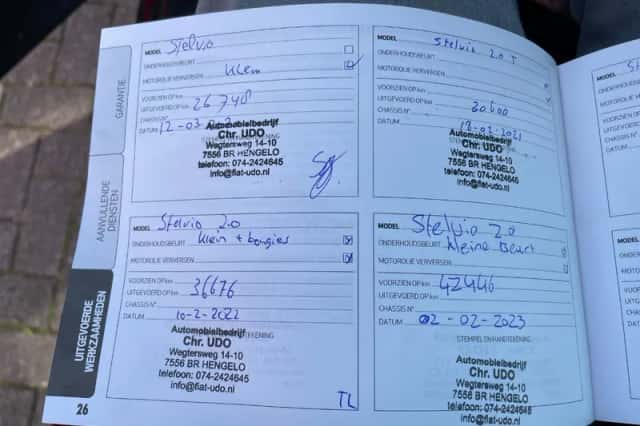 GARANTIE
AANVULLENDE
DIENSTEN
UITGEVOERDE
WERKZAAMHEDEN
MODEL Stelvio
ONDERHOUDSBEURT
MOTOROLIE VERVERSEN Klein
VOORZIEN OP km
UITGEVOERD OP km 26748
CHASSIS N°
DATUM 12-03
Automobielbedrijf
Chr. UDO
Wegtersweg 14-10
7556 BR HENGELO
telefoon: 074-2424645
info@fiat-udo.nl
MODEL Stelvio 2.0 T
ONDERHOUDSBEURT
MOTOROLIE VERVERSEN
VOORZIEN OP km
UITGEVOERD OP km
CHASSIS N°
DATUM 2021
Automobielbedrijf
Chr. UDO
Wegtersweg 14-10
7556 BR HENGELO
telefoon: 074-2424645
info@fiat-udo.nl
MODEL Stelvio 2.0
ONDERHOUDSBEURT Klein + bougies
MOTOROLIE VERVERSEN
VOORZIEN OP km
UITGEVOERD OP km 36676
CHASSIS N°
DATUM 10-2-2022
Automobielbedrijf
Chr. UDO
Wegtersweg 14-10
7556 BR HENGELO
telefoon: 074-2424645
info@fiat-udo.nl
TL
MODEL Stelvio 2.0
ONDERHOUDSBEURT Kleine Beurt
MOTOROLIE VERVERSEN
VOORZIEN OP km
UITGEVOERD OP km 42446
CHASSIS N°
DATUM 02-02-2023
STEMPEL EN HANDTEKENING
Automobielbedrijf
Chr. UDO
Wegtersweg 14-10
7556 BR HENGELO
telefoon: 074-2424645
info@fiat-udo.nl
26